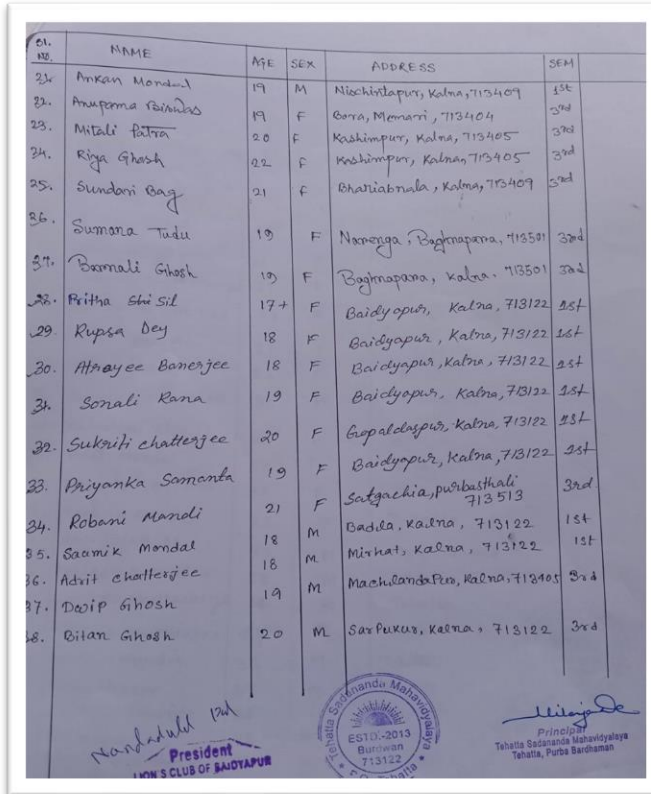 Sl. No. NAME AGE SEX ADDRESS SEM
21. Ankan Mondal 19 M Nischintapur, Kalna, 713409 1st
22. Anupama Biswas 19 F Bora, Memari, 713404 3rd
23. Mitali Patra 20 F Kashimpur, Kalna, 713405 3rd
24. Riya Ghosh 22 F Kashimpur, Kalna, 713405 3rd
25. Sundari Bag 21 F Kalna, 713409 3rd
26. Sumana Tudu 19 F Baghnapara, 713501 3rd
27. Barnali Ghosh 19 F Baghnapara, Kalna, 713501 3rd
28. Pritha Shi Sil 17+ F Baidyopur, Kalna, 713122 1st
29. Rupsa Dey 18 F Baidyapur, Kalna, 713122 1st
30. Atrayee Banerjee 18 F Baidyapur, Kalna, 713122 1st
31. Sonali Rana 19 F Baidyapur, Kalna, 713122 1st
32. Sukriti chatterjee 20 F Gopaldaspur, Kalna, 713122 1st
33. Priyanka Samanta 19 F Baidyapur, Kalna, 713122 1st
34. Robani Mandi 21 F Satgachia, purbasthali 3rd
713513
35. Saamik Mondal 18 M Badla, Kalna, 713122 1st
36. Adrit chatterjee 18 M Mirhat, Kalna, 713122 1st
37. Dwip Ghosh 19 M Kalna, 713405 3rd
38. Bitan Ghosh 20 M SarPukur, Kalna, 713122 3rd
President
LION'S CLUB OF BAIDYAPUR
Tehatta Sadananda Mahavidyalaya
ESTD.-2013
Burdwan
713122
Principal
Tehatta Sadananda Mahavidyalaya
Tehatta, Purba Bardhaman